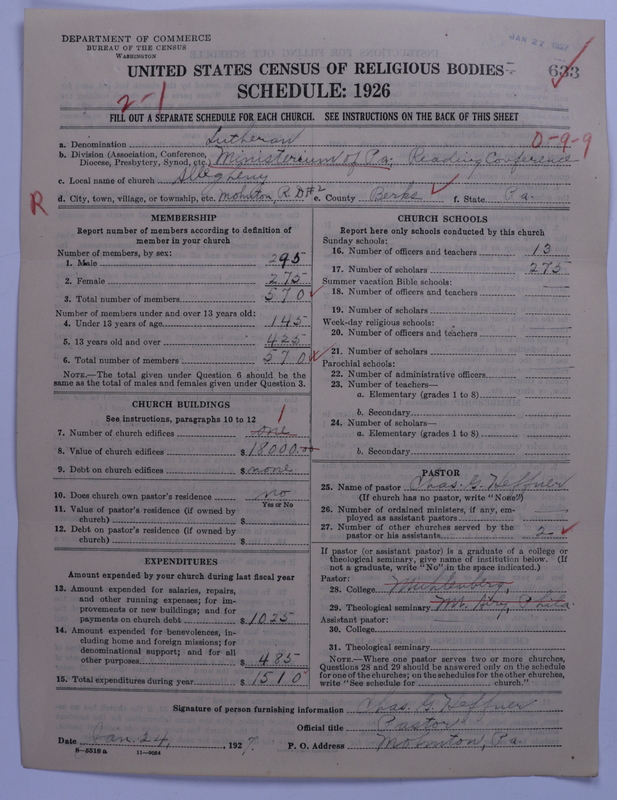 DEPARTMENT OF COMMERCE
BUREAU OF THE CENSUS
WASHINGTON
JAN 27 1927
UNITED STATES CENSUS OF RELIGIOUS BODIES
633
SCHEDULE: 1926
2-1
FILL OUT A SEPARATE SCHEDULE FOR EACH CHURCH. SEE INSTRUCTIONS ON THE BACK OF THIS SHEET
a. Denomination Lutheran
0-9-9
b. Division (Association, Conference, Diocese, Presbytery, Synod, etc.) Ministerium of Pa. Reading Conference
c. Local name of church Allegheny
R
d. City, town, village, or township, etc. Mohnton, R.D.#2 e. County Berks f. State Pa.
MEMBERSHIP
Report number of members according to definition of
member in your church
Number of members, by sex:
1. Male 295
2. Female 275
3. Total number of members 570
Number of members under and over 13 years old:
4. Under 13 years of age 145
5. 13 years old and over 425
6. Total number of members 570
NOTE.—The total given under Question 6 should be the
same as the total of males and females given under Question 3.
CHURCH BUILDINGS
See instructions, paragraphs 10 to 12
1
7. Number of church edifices one
8. Value of church edifices $18000.00
9. Debt on church edifices $none
10. Does church own pastor's residence no
Yes or No
11. Value of pastor's residence (if owned by
church) $
12. Debt on pastor's residence (if owned by
church) $
EXPENDITURES
Amount expended by your church during last fiscal year
13. Amount expended for salaries, repairs,
and other running expenses; for im-
provements or new buildings; and for
payments on church debt $1025
14. Amount expended for benevolences, in-
cluding home and foreign missions; for
denominational support; and for all
other purposes $485
15. Total expenditures during year $1510
CHURCH SCHOOLS
Report here only schools conducted by this church
Sunday schools:
16. Number of officers and teachers 13
17. Number of scholars 275
Summer vacation Bible schools:
18. Number of officers and teachers
19. Number of scholars
Week-day religious schools:
20. Number of officers and teachers
21. Number of scholars
Parochial schools:
22. Number of administrative officers
23. Number of teachers—
a. Elementary (grades 1 to 8)
b. Secondary
24. Number of scholars—
a. Elementary (grades 1 to 8)
b. Secondary
PASTOR
25. Name of pastor Chas. G. Heffner
(If church has no pastor, write "None")
26. Number of ordained ministers, if any, em-
ployed as assistant pastors
27. Number of other churches served by the
pastor or his assistants 2
If pastor (or assistant pastor) is a graduate of a college or
theological seminary, give name of institution below. (If
not a graduate, write "No" in the space indicated.)
Pastor:
28. College Muhlenberg,
29. Theological seminary Mt. Airy Phila
Assistant pastor:
30. College
31. Theological seminary
NOTE.—Where one pastor serves two or more churches,
Questions 28 and 29 should be answered only on the schedule
for one of the churches; on the schedules for the other churches,
write "See schedule for church."
Signature of person furnishing information Chas. G. Heffner
Official title Pastor
Date Jan. 24, 1927. P. O. Address Mohnton, Pa.
8-5518a 11-9054